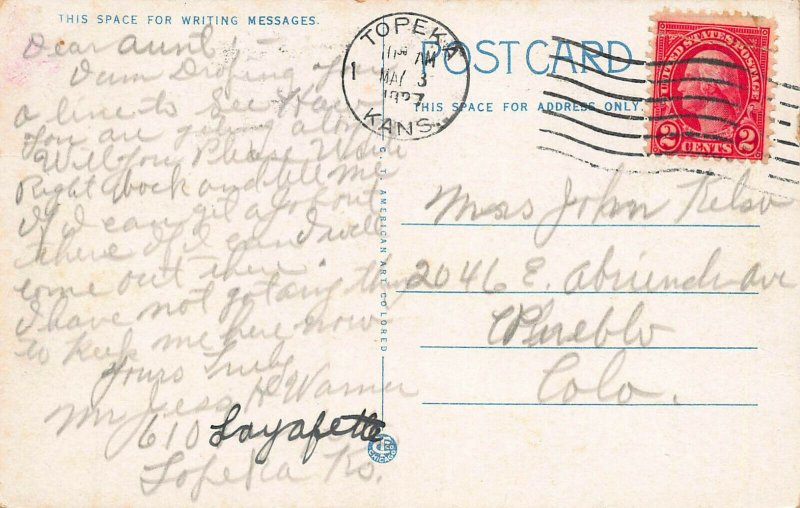 THIS SPACE FOR WRITING MESSAGES.
Dear Aunt:-
I am Droping you
a line to See How
You are geting along
Will you Please Write
Right Back and tell me
if I can get a Job out
there if I can I will
come out there.
I have not got any thing
to keep me here now
Yours Truly
Mr Jess H Warner
610 Layafette
Topeka Ks.
C. T. AMERICAN ART COLORED
TOPEKA
AM
1 MAY 3
1927
KANS.
POST CARD
THIS SPACE FOR ADDRESS ONLY.
UNITED STATES POSTAGE
2 CENTS 2
Mrs John Kelso
2046 E. Abriendo Ave
Pueblo
Colo.